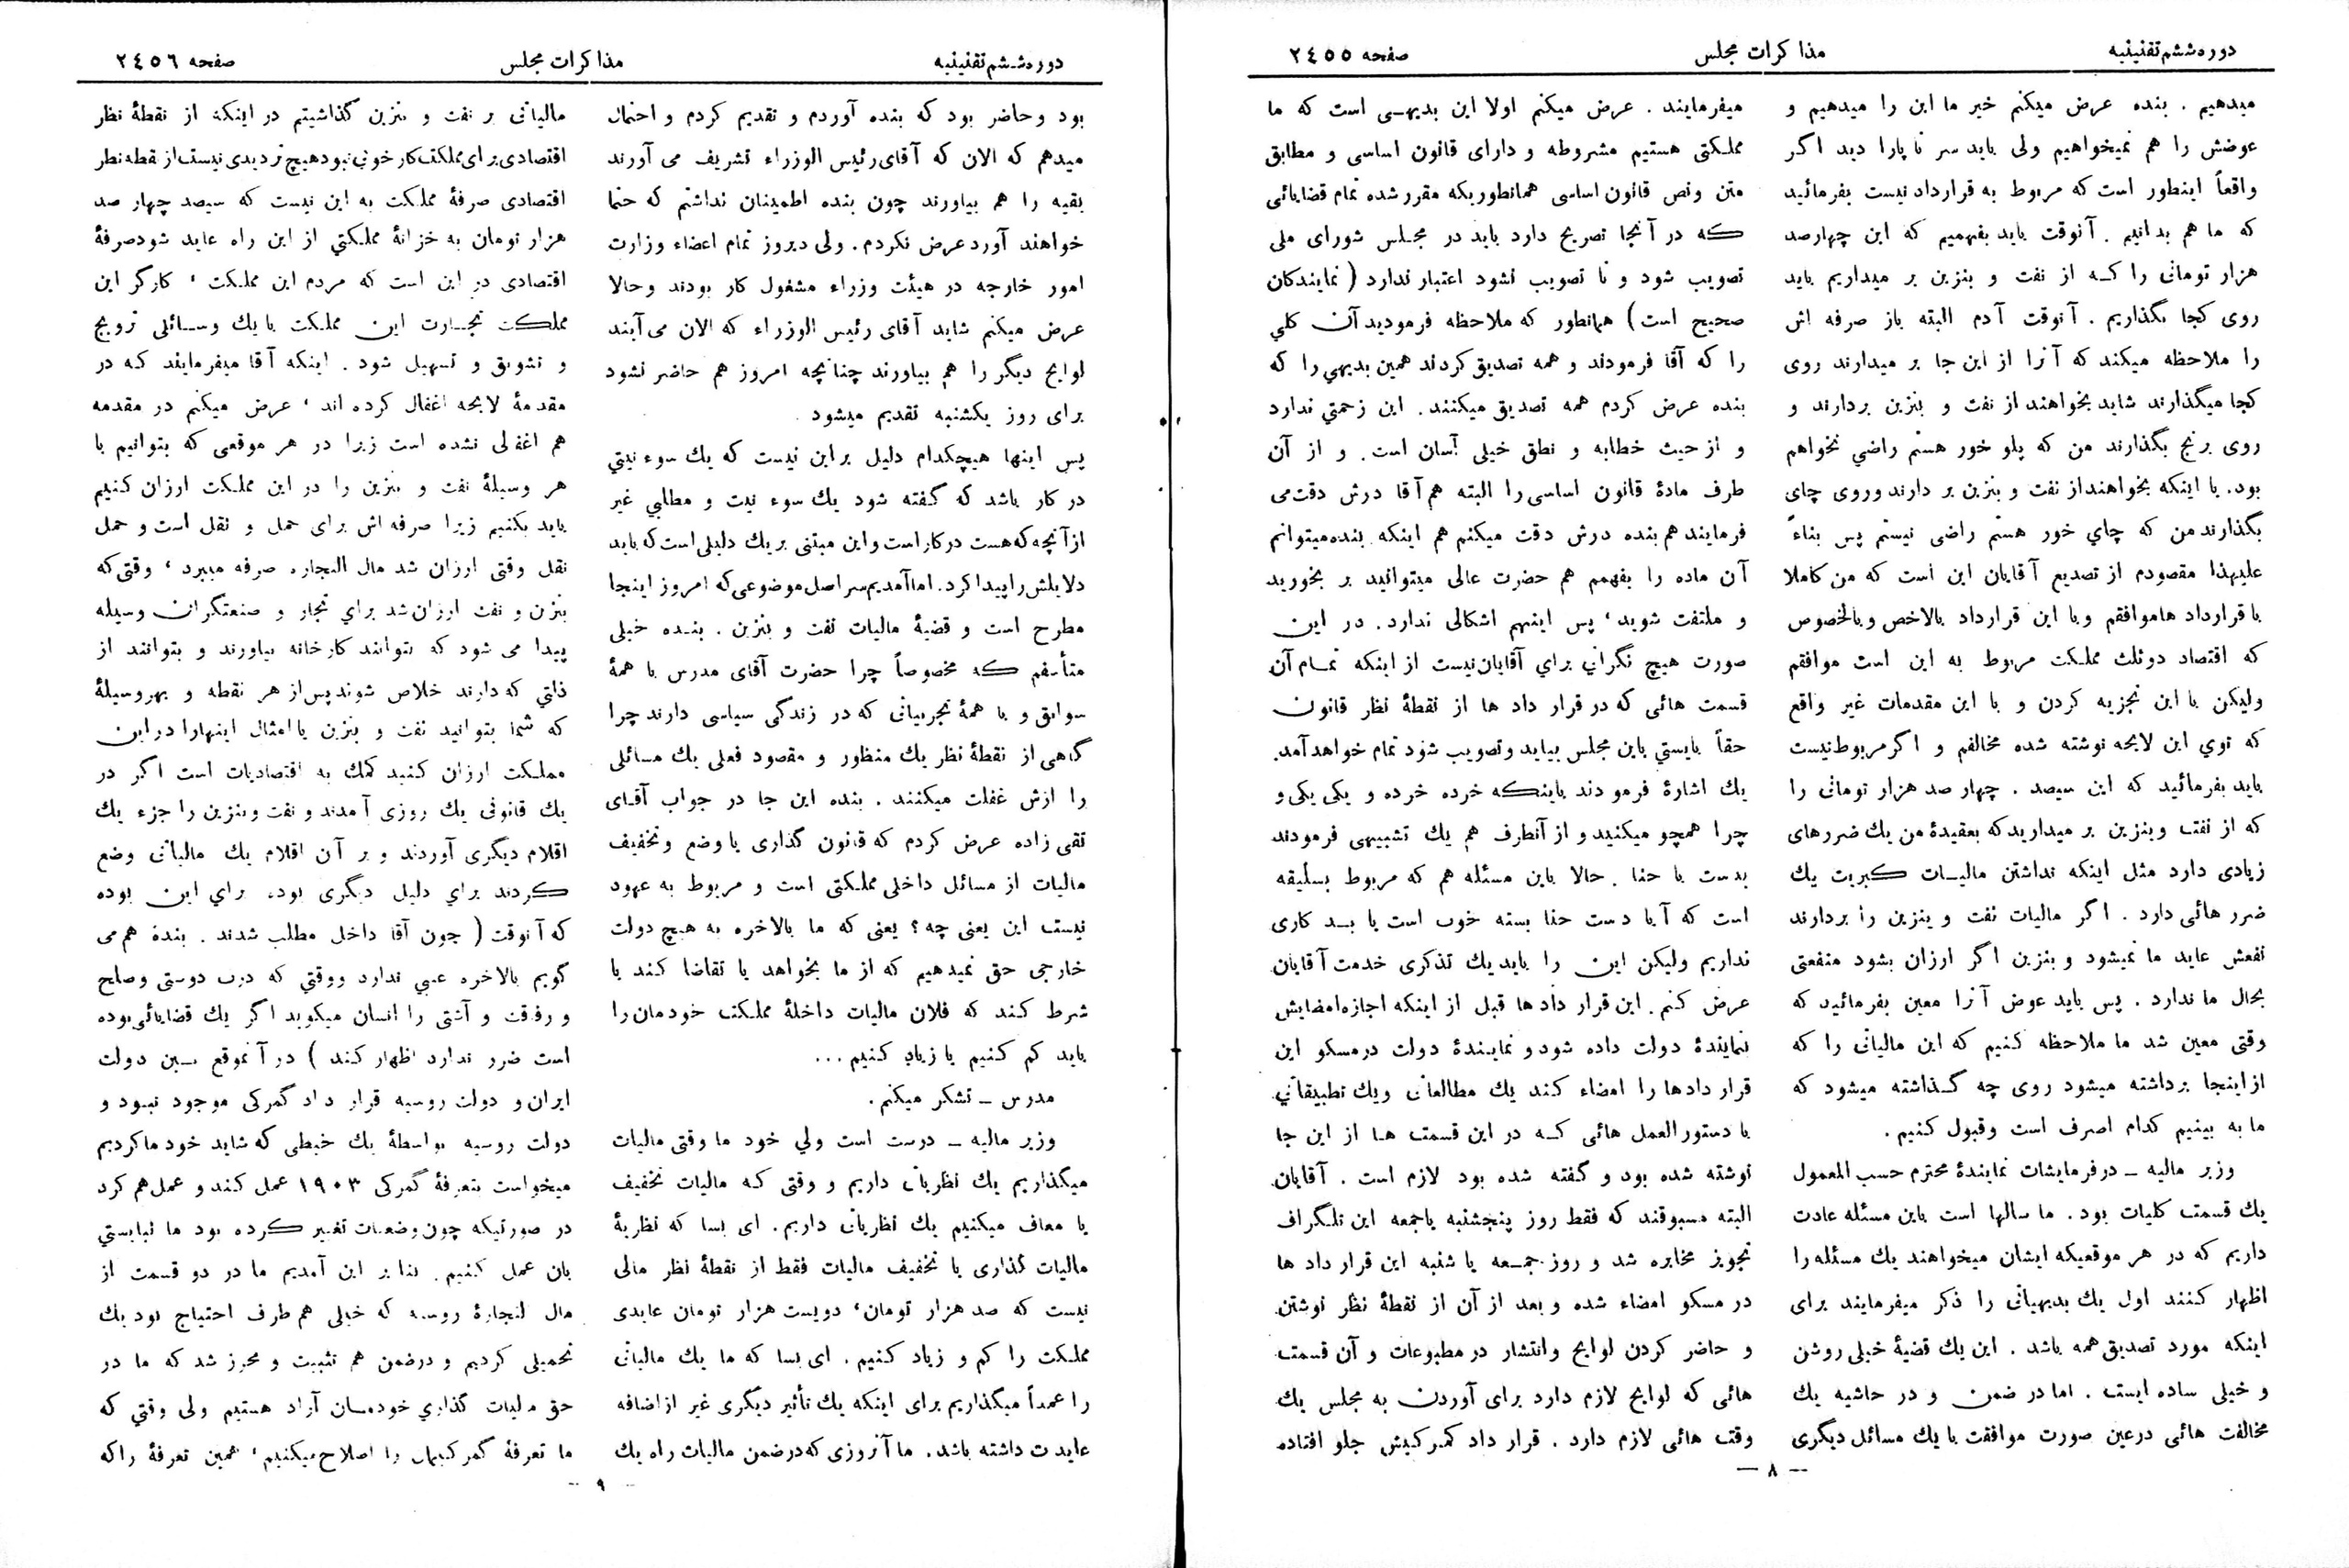 دوره ششم تقنینیه
مذاکرات مجلس
صفحه ۲٤٥٥
میدهیم . بنده عرض میکنم خیر ما این را میدهیم و
عوضش را هم نمیخواهیم ولی باید سر تا پا را دید اگر
واقعاً اینطور است که مربوط به قرارداد نیست بفرمائید
که ما هم بدانیم . آنوقت باید بفهمیم که این چهارصد
هزار تومانی را که از نفت و بنزین بر میداریم باید
روی کجا بگذاریم . آنوقت آدم البته باز صرفه اش
را ملاحظه میکند که آنرا از این جا بر میدارند روی
کجا میگذارند شاید بخواهند از نفت و بنزین بردارند و
روی برنج بگذارند من که پلو خور هستم راضي نخواهم
بود. یا اینکه بخواهند از نفت و بنزین بر دارند وروی چای
بگذارند من که چاي خور هستم راضی نیستم پس بناءً
علیهذا مقصودم از تصدیع آقایان این است که من کاملا
با قرارداد ها موافقم و با این قرارداد بالاخص و بالخصوص
که اقتصاد دولت مملکت مربوط به این است موافقم
ولیکن با این تجزیه کردن و با این مقدمات غیر واقع
که توي این لایحه نوشته شده مخالفم و اگر مربوط نیست
باید بفرمائید که این سیصد . چهار صد هزار تومانی را
که از نفت و بنزین بر میدارید که بعقیدۀ من یك ضررهای
زیادی دارد مثل اینکه نداشتن مالیات کبریت یك
ضرر هائی دارد . اگر مالیات نفت و بنزین را بردارند
نفعش عاید ما نمیشود و بنزین اگر ارزان بشود منفعتی
بحال ما ندارد . پس باید عوض آنرا معین بفرمائید که
وقتی معین شد ما ملاحظه کنیم که این مالیاتی را که
از اینجا برداشته میشود روی چه گذاشته میشود که
ما به بینیم کدام اصرف است وقبول کنیم .
وزیر مالیه ــ در فرمایشات نمایندۀ محترم حسب المعمول
یك قسمت کلیات بود . ما سالها است باین مسئله عادت
داریم که در هر موقعیکه ایشان میخواهند یك مسئله را
اظهار کنند اول یك بدیهیاتی را ذکر میفرمایند برای
اینکه مورد تصدیق همه باشد . این یك قضیۀ خیلی روشن
و خیلی ساده ایست . اما در ضمن و در حاشیه یك
مخالفت هائی در عین صورت موافقت با یك مسائل دیگری
میفرمایند . عرض میکنم اولا این بدیهی است که ما
مملکتی هستیم مشروطه و دارای قانون اساسی و مطابق
متن ونص قانون اساسی همانطوریکه مقرر شده تمام قضایائی
که در آنجا تصریح دارد باید در مجلس شورای ملی
تصویب شود و تا تصویب نشود اعتبار ندارد ( نمایندگان
صحیح است) همانطور که ملاحظه فرمودید آن کلي
را که آقا فرمودند و همه تصدیق کردند همین بدیهي را که
بنده عرض کردم همه تصدیق میکنند . این زحمتي ندارد
و از حیث خطابه و نطق خیلی آسان است . و از آن
طرف مادۀ قانون اساسی را البته هم آقا درش دقت می
فرمایند هم بنده درش دقت میکنم هم اینکه بنده میتوانم
آن ماده را بفهمم هم حضرت عالی میتوانید بر بخورید
و ملتفت شوید، پس اینهم اشکالی ندارد . در این
صورت هیچ نگرانی براي آقایان نیست از اینکه تمام آن
قسمت هائی که در قرار داد ها از نقطۀ نظر قانون
حقاً بایستي باین مجلس بیاید وتصویب شود تمام خواهد آمد.
یك اشارۀ فرمودند باینکه خرده خرده و یکی یکی و
چرا همچو میکنید و از آنطرف هم یك تشبیهی فرمودند
بدست با حنا . حالا باین مسئله هم که مربوط بسلیقه
است که آیا دست حنا بسته خوب است یا بد کاری
نداریم ولیکن این را باید یك تذکری خدمت آقایان
عرض کنم . این قرار داد ها قبل از اینکه اجازه امضایش
بنمایندۀ دولت داده شود و نمایندۀ دولت در مسکو این
قرار دادها را امضاء کند یك مطالعاتی ویك تطبیقاتی
با دستور العمل هائی که در این قسمت ها از این جا
نوشته شده بود و گفته شده بود لازم است . آقایان
البته مسبوقند که فقط روز پنجشنبه یا جمعه این تلگراف
تجویز مخابره شد و روز جمعه یا شنبه این قرار داد ها
در مسکو امضاء شده و بعد از آن از نقطۀ نظر نوشتن
و حاضر کردن لوایح وانتشار در مطبوعات و آن قسمت
هائی که لوایح لازم دارد برای آوردن به مجلس یك
وقت هائی لازم دارد . قرار داد گمرکیش جلو افتاده
ــ ۸ ــ
دوره ششم تقنینیه
مذاکرات مجلس
صفحه ۲٤٥٦
بود وحاضر بود که بنده آوردم و تقدیم کردم و احتمال
میدهم که الان که آقای رئیس الوزراء تشریف می آورند
بقیه را هم بیاورند چون بنده اطمینان نداشتم که حتما
خواهند آورد عرض نکردم . ولی دیروز تمام اعضاء وزارت
امور خارجه در هیئت وزراء مشغول کار بودند وحالا
عرض میکنم شاید آقای رئیس الوزراء که الان می آیند
لوایح دیگر را هم بیاورند چنانچه امروز هم حاضر نشود
برای روز یکشنبه تقدیم میشود .
پس اینها هیچکدام دلیل بر این نیست که یك سوء نیتي
در کار باشد که گفته شود یك سوء نیت و مطالبي غیر
از آنچه که هست در کار است و این مبتنی بر یك دلیلی است که باید
دلایلش را پیدا کرد . اما آمدیم سر اصل موضوعی که امروز اینجا
مطرح است و قضیۀ مالیات نفت و بنزین . بنده خیلی
متأسفم که مخصوصاً چرا حضرت آقای مدرس با همۀ
سوابق و با همۀ تجربیاتی که در زندگی سیاسی دارند چرا
گاهی از نقطۀ نظر یك منظور و مقصود فعلی یك مسائلی
را ازش غفلت میکنند . بنده این جا در جواب آقای
تقی زاده عرض کردم که قانون گذاری یا وضع وتخفیف
مالیات از مسائل داخلی مملکتی است و مربوط به عهود
نیست این یعنی چه ؟ یعنی که ما بالاخره به هیچ دولت
خارجی حق نمیدهیم که از ما بخواهد یا تقاضا کند یا
شرط کند که فلان مالیات داخلۀ مملکت خودمان را
باید کم کنیم یا زیاد کنیم ...
مدرس ــ تشکر میکنم .
وزیر مالیه ــ درست است ولي خود ما وقتی مالیات
میگذاریم یك نظریات داریم و وقتی که مالیات تخفیف
یا معاف میکنیم یك نظریات داریم . ای بسا که نظریۀ
مالیات گذاری یا تخفیف مالیات فقط از نقطۀ نظر مالی
نیست که صد هزار تومان، دویست هزار تومان عایدی
مملکت را کم و زیاد کنیم . ای بسا که ما یك مالیاتی
را عمداً میگذاریم برای اینکه یك تأثیر دیگری غیر از اضافه
عایدت داشته باشد . ما آنروزی که در ضمن مالیات راه یك
مالیاتی بر نفت و بنزین گذاشتیم در اینکه از نقطۀ نظر
اقتصادی برای مملکت کار خوبی نبود هیچ تردیدی نیست از نقطه نظر
اقتصادی صرفۀ مملکت به این نیست که سیصد چهار صد
هزار تومان به خزانۀ مملکتي از این راه عاید شود صرفۀ
اقتصادی در این است که مردم این مملکت ، کارگر این
مملکت تجارت این مملکت با یك وسائلی ترویج
و تشویق و تسهیل شود . اینکه آقا میفرمایند که در
مقدمۀ لایحه اغفال کرده اند ، عرض میکنم در مقدمه
هم اغفالی نشده است زیرا در هر موقعی که بتوانیم با
هر وسیلۀ نفت و بنزین را در این مملکت ارزان کنیم
باید بکنیم زیرا صرفه اش برای حمل و نقل است و حمل
نقل وقتی ارزان شد مال التجاره صرفه میبرد ، وقتی که
بنزن و نفت ارزان شد براي تجار و صنعتگران وسیله
پیدا می شود که بتوانند کارخانه بیاورند و بتوانند از
ذلتي که دارند خلاص شوند پس از هر نقطه و بهر وسیلۀ
که شما بتوانید نفت و بنزین یا امثال اینها را در این
مملکت ارزان کنید کمك به اقتصادیات است اگر در
یك قانونی یك روزی آمدند و نفت وبنزین را جزء یك
اقلام دیگری آوردند و بر آن اقلام یك مالیاتی وضع
کردند براي دلیل دیگری بود، براي این بوده
که آنوقت ( چون آقا داخل مطلب شدند . بنده هم می
گویم بالاخره عیبي ندارد ووقتي که درب دوستی وصلح
و رفاقت و آشتی را انسان میکوبد اگر یك قضایائی بوده
است ضرر ندارد اظهار کند ) در آنموقع بین دولت
ایران و دولت روسیه قرار داد گمرکی موجود نبود و
دولت روسیه بواسطۀ یك خبطی که شاید خود ما کردیم
میخواست بتعرفۀ گمرکی ۱۹۰۳ عمل کند و عمل هم کرد
در صورتیکه چون وضعیات تغییر کرده بود ما نبایستي
بان عمل کنیم . بنا بر این آمدیم ما در دو قسمت از
مال التجارۀ روسیه که خیلی هم طرف احتیاج بود یك
تحمیلی کردیم و در ضمن هم تثبیت و محرز شد که ما در
حق مالیات گذاري خودمان آزاد هستیم ولی وقتي که
ما تعرفۀ گمرکیمان را اصلاح میکنیم ، همین تعرفۀ را که
ــ ۹ ــ